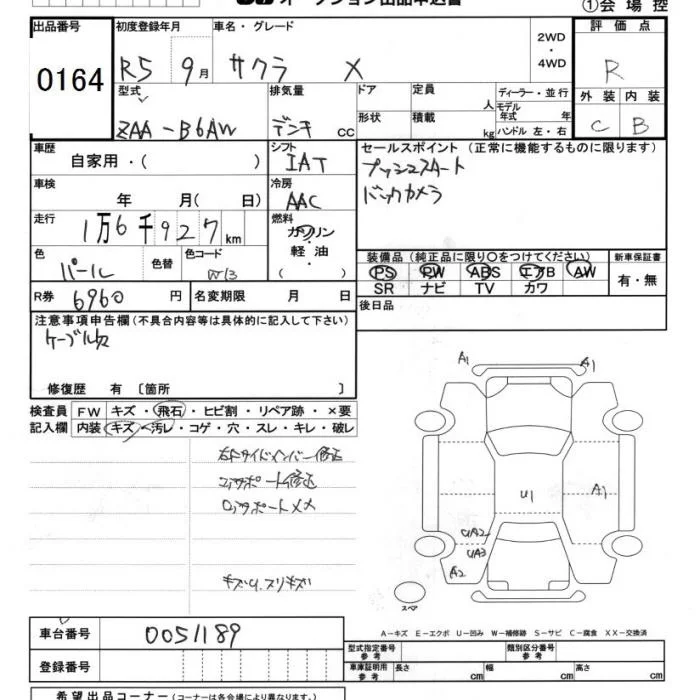 オークション出品申込書 ①会場控
出品番号 0164
初度登録年月 R5 9月
車名・グレード サクラ X
2WD・4WD
評価点 R
型式 ZAA-B6AW
排気量 デンキ CC
ドア 形状
定員 人
積載 kg
ディーラー・並行
モデル年式 年
ハンドル 左・右
外装 C
内装 B
車歴 自家用・( )
シフト IAT
セールスポイント (正常に機能するものに限ります)
プッシュスタート
バックカメラ
車検 年 月( 日)
冷房 AAC
走行 1万6千927km
燃料 ガソリン・軽油・( )
色 パール
色替
色コード W13
装備品 (純正品に限り○をつけてください)
PS PW ABS エアB AW
SR ナビ TV カワ
新車保証書 有・無
R券 6960円
名変期限 月 日
後日品
注意事項申告欄 (不具合内容等は具体的に記入して下さい)
修復歴 有 〔箇所 〕
検査員記入欄
FW キズ・飛石・ヒビ割・リペア跡・×要
内装 キズ・汚レ・コゲ・穴・スレ・キレ・破レ
A1 A1
U1 A1
UA2
UA3
A2
スペア
A-キズ E-エクボ U-凹み W-補修跡 S-サビ C-腐食 XX-交換済
車台番号 0051189
登録番号
型式指定番号 参考
類別区分番号 参考
車庫証明用 参考 長さ cm 幅 cm 高さ cm
希望出品コーナー (コーナーは各会場により異なります。)